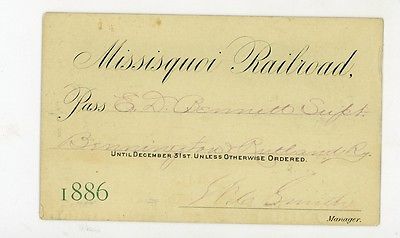 Missisquoi Railroad,
Pass E. D. Bennett Supt.
Bennington & Rutland Ry.
UNTIL DECEMBER 31ST UNLESS OTHERWISE ORDERED.
1886
Smith
Manager.